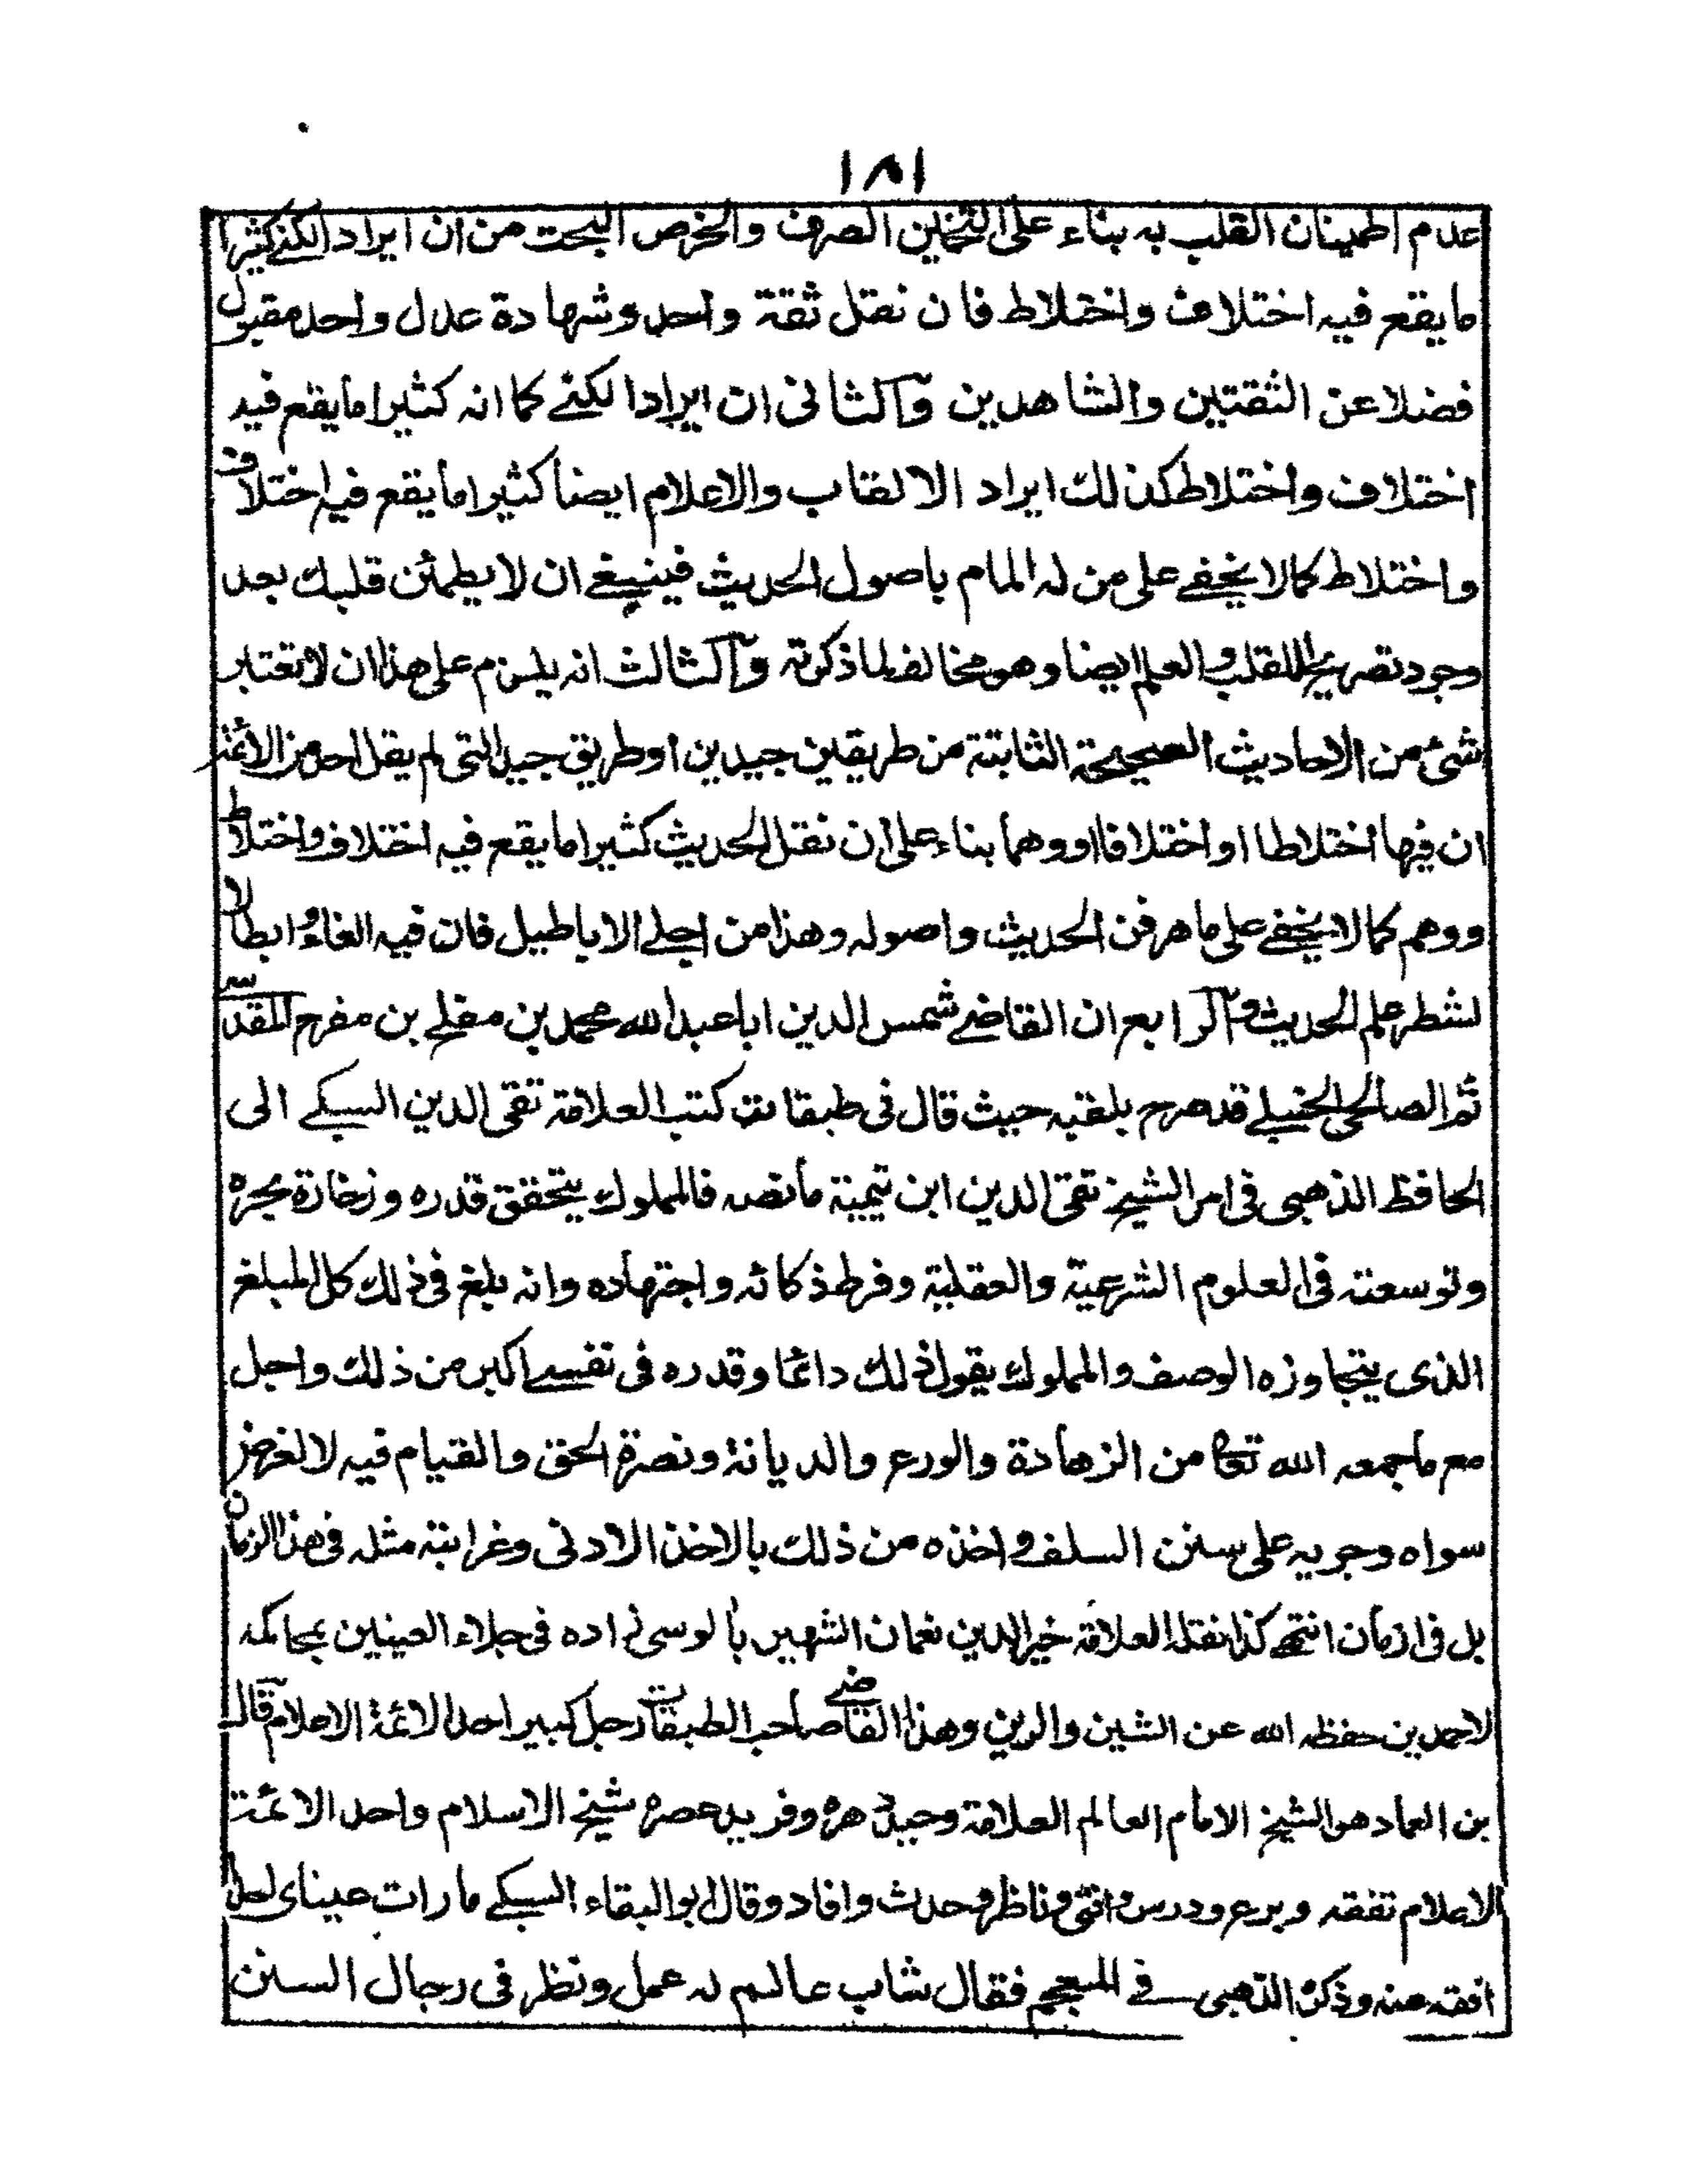 ١٨١
عدم اطمينان القلب به بناء على التخمين الصرف والخرص البحت من ان ايراد الكنى كثيرا
ما يقع فيه اختلاف واختلاط فان نقل ثقة واحد وشهادة عدل واحد مقبول
فضلا عن الثقتين والشاهدين والثانى ان ايراد الكنى كما انه كثيرا ما يقع فيه
اختلاف واختلاط كذلك ايراد الالقاب والاعلام ايضا كثيرا ما يقع فيه اختلاف
واختلاط كما لا يخفى على من له المام باصول الحديث فينبغى ان لا يطمئن قلبك بعد
وجود تصريح اللقب والعلم ايضا وهو مخالف لما ذكرته والثالث انه يلزم على هذا ان لا تعتبر
شئ من الاحاديث الصحيحة الثابتة من طريقين جيدين او طريق جيد التى لم يقل احد من الائمة
ان فيها اختلاطا او اختلافا او وهما بناء على ان نقل الحديث كثيرا ما يقع فيه اختلاف واختلاط
ووهم كما لا يخفى على ماهر فن الحديث واصوله وهذا من اجلى الاباطيل فان فيه الغاء وابطالا
لشطر علم الحديث والرابع ان القاضى شمس الدين ابا عبد الله محمد بن مفلح بن مفرح المقدسى
ثم الصالحى الحنبلى قد صرح بلقبه حيث قال فى طبقاته كتب العلامة تقى الدين السبكى الى
الحافظ الذهبى فى امر الشيخ تقى الدين ابن تيمية ما نصه فالمملوك يتحقق قدره وزخارة بحره
وتوسعته فى العلوم الشرعية والعقلية وفرط ذكائه واجتهاده وانه بلغ فى ذلك كل المبلغ
الذى يتجاوزه الوصف والمملوك يقول ذلك دائما وقدره فى نفسى اكبر من ذلك واجل
مع ما جمعه الله تعالى من الزهادة والورع والديانة ونصرة الحق والقيام فيه لا لغرض
سواه وجريه على سنن السلف واخذه من ذلك بالاخذ الادنى وغرابة مثله فى هذا الزمان
بل فى ازمان انتهى كذا نقله العلامة خير الدين نعمان الشهير بألوسى زاده فى جلاء العينين بمحاكمة
الاحمدين حفظه الله عن الشين والرين وهذا القاضى صاحب الطبقات رجل كبير احد الائمة الاعلام قال
بن العماد هو الشيخ الامام العالم العلامة وحيد دهره وفريد عصره شيخ الاسلام واحد الائمة
الاعلام تفقه وبرع ودرس وافتى وناظر وحدث وافاد وقال ابو البقاء السبكى ما رات عيناى احدا
افقه منه وذكره الذهبى فى المعجم فقال شاب عالم له عمل ونظر فى رجال السنن